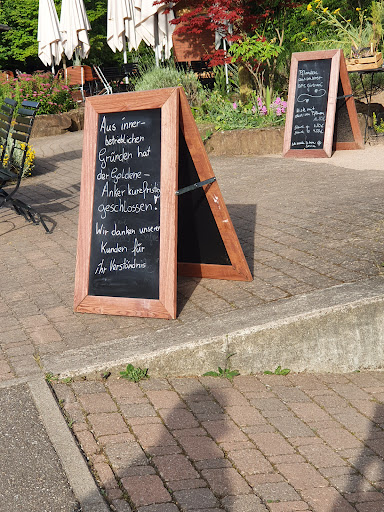 Aus inner-
betrieblichen
Gründen hat
der Goldene-
Anker kurzfristig
geschlossen!
Wir danken unseren
Kunden für
ihr Verständnis